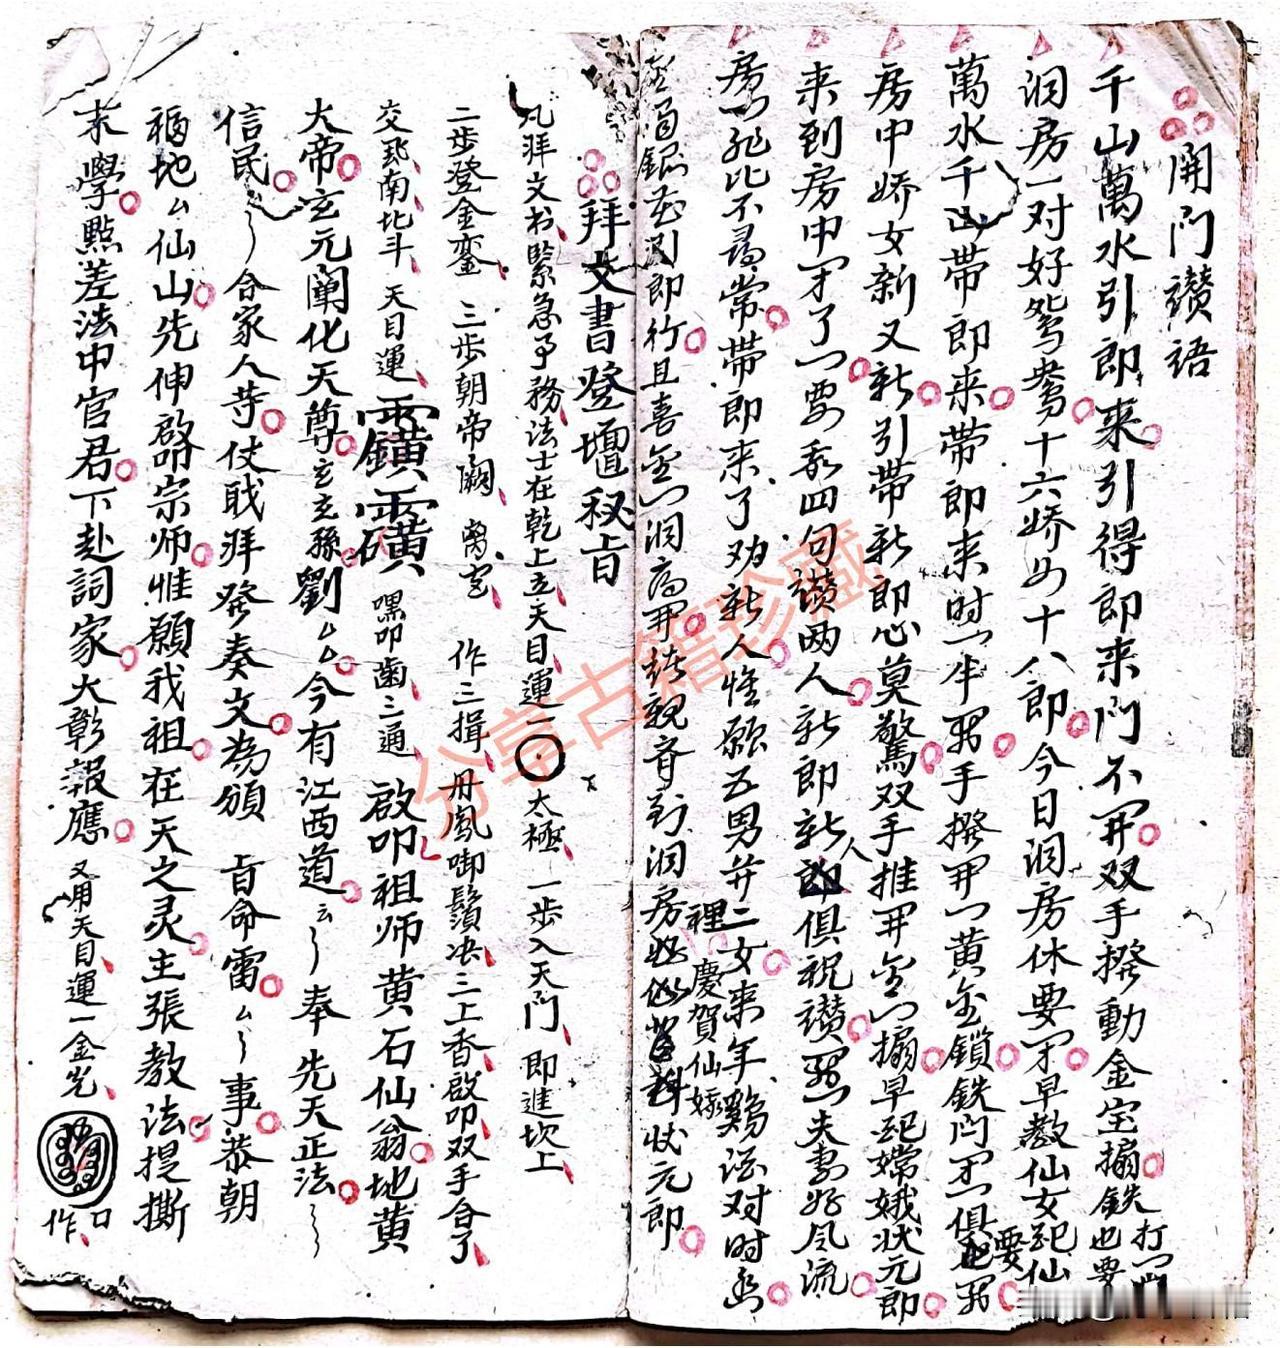 開門讃語
千山萬水引郎來引得郎来門不開双手撥動金宝搧鉄打門也要
洞房一对好鸳鸯十六娇女十八郎今日洞房休要早教仙女配仙
萬水千山带郎来带郎来时一半手撥開黄金鎖鉄門俱要
房中娇女新又新引带新郎心莫驚双手推開金门搧早配嫦娥状元郎
来到房中了要我四句讃两人新郎新人俱祝讃夫妻好風流
房比不尋常带郎来了劝新人惟願五男并二女来年鷄酒对时
裡慶賀仙嫁
銀引郎行且喜金门洞房開親房状元郎
拜文書登壇秘旨
凡拜文书緊急事務法士在乾上立天目運一太極一步入天門即進坎上
二步登金鑾三步朝帝闕离宫作三揖丹鳳啣鬚决三上香啟叩双手合了
交乾南北斗天目運嘿叩齒三通啟叩祖师黄石仙翁地黄
大帝玄元闡化天尊玄玄孫劉厶厶今有江西道云奉先天正法
信民厶合家人等仗戝拜發奏文為頒旨命雷厶事恭朝
福地厶仙山先伸啟宗师惟願我祖在天之灵主張教法提撕
末學點差法中官君下赴詞家大彰報應又用天目運一金光
作口
分享古籍珍藏